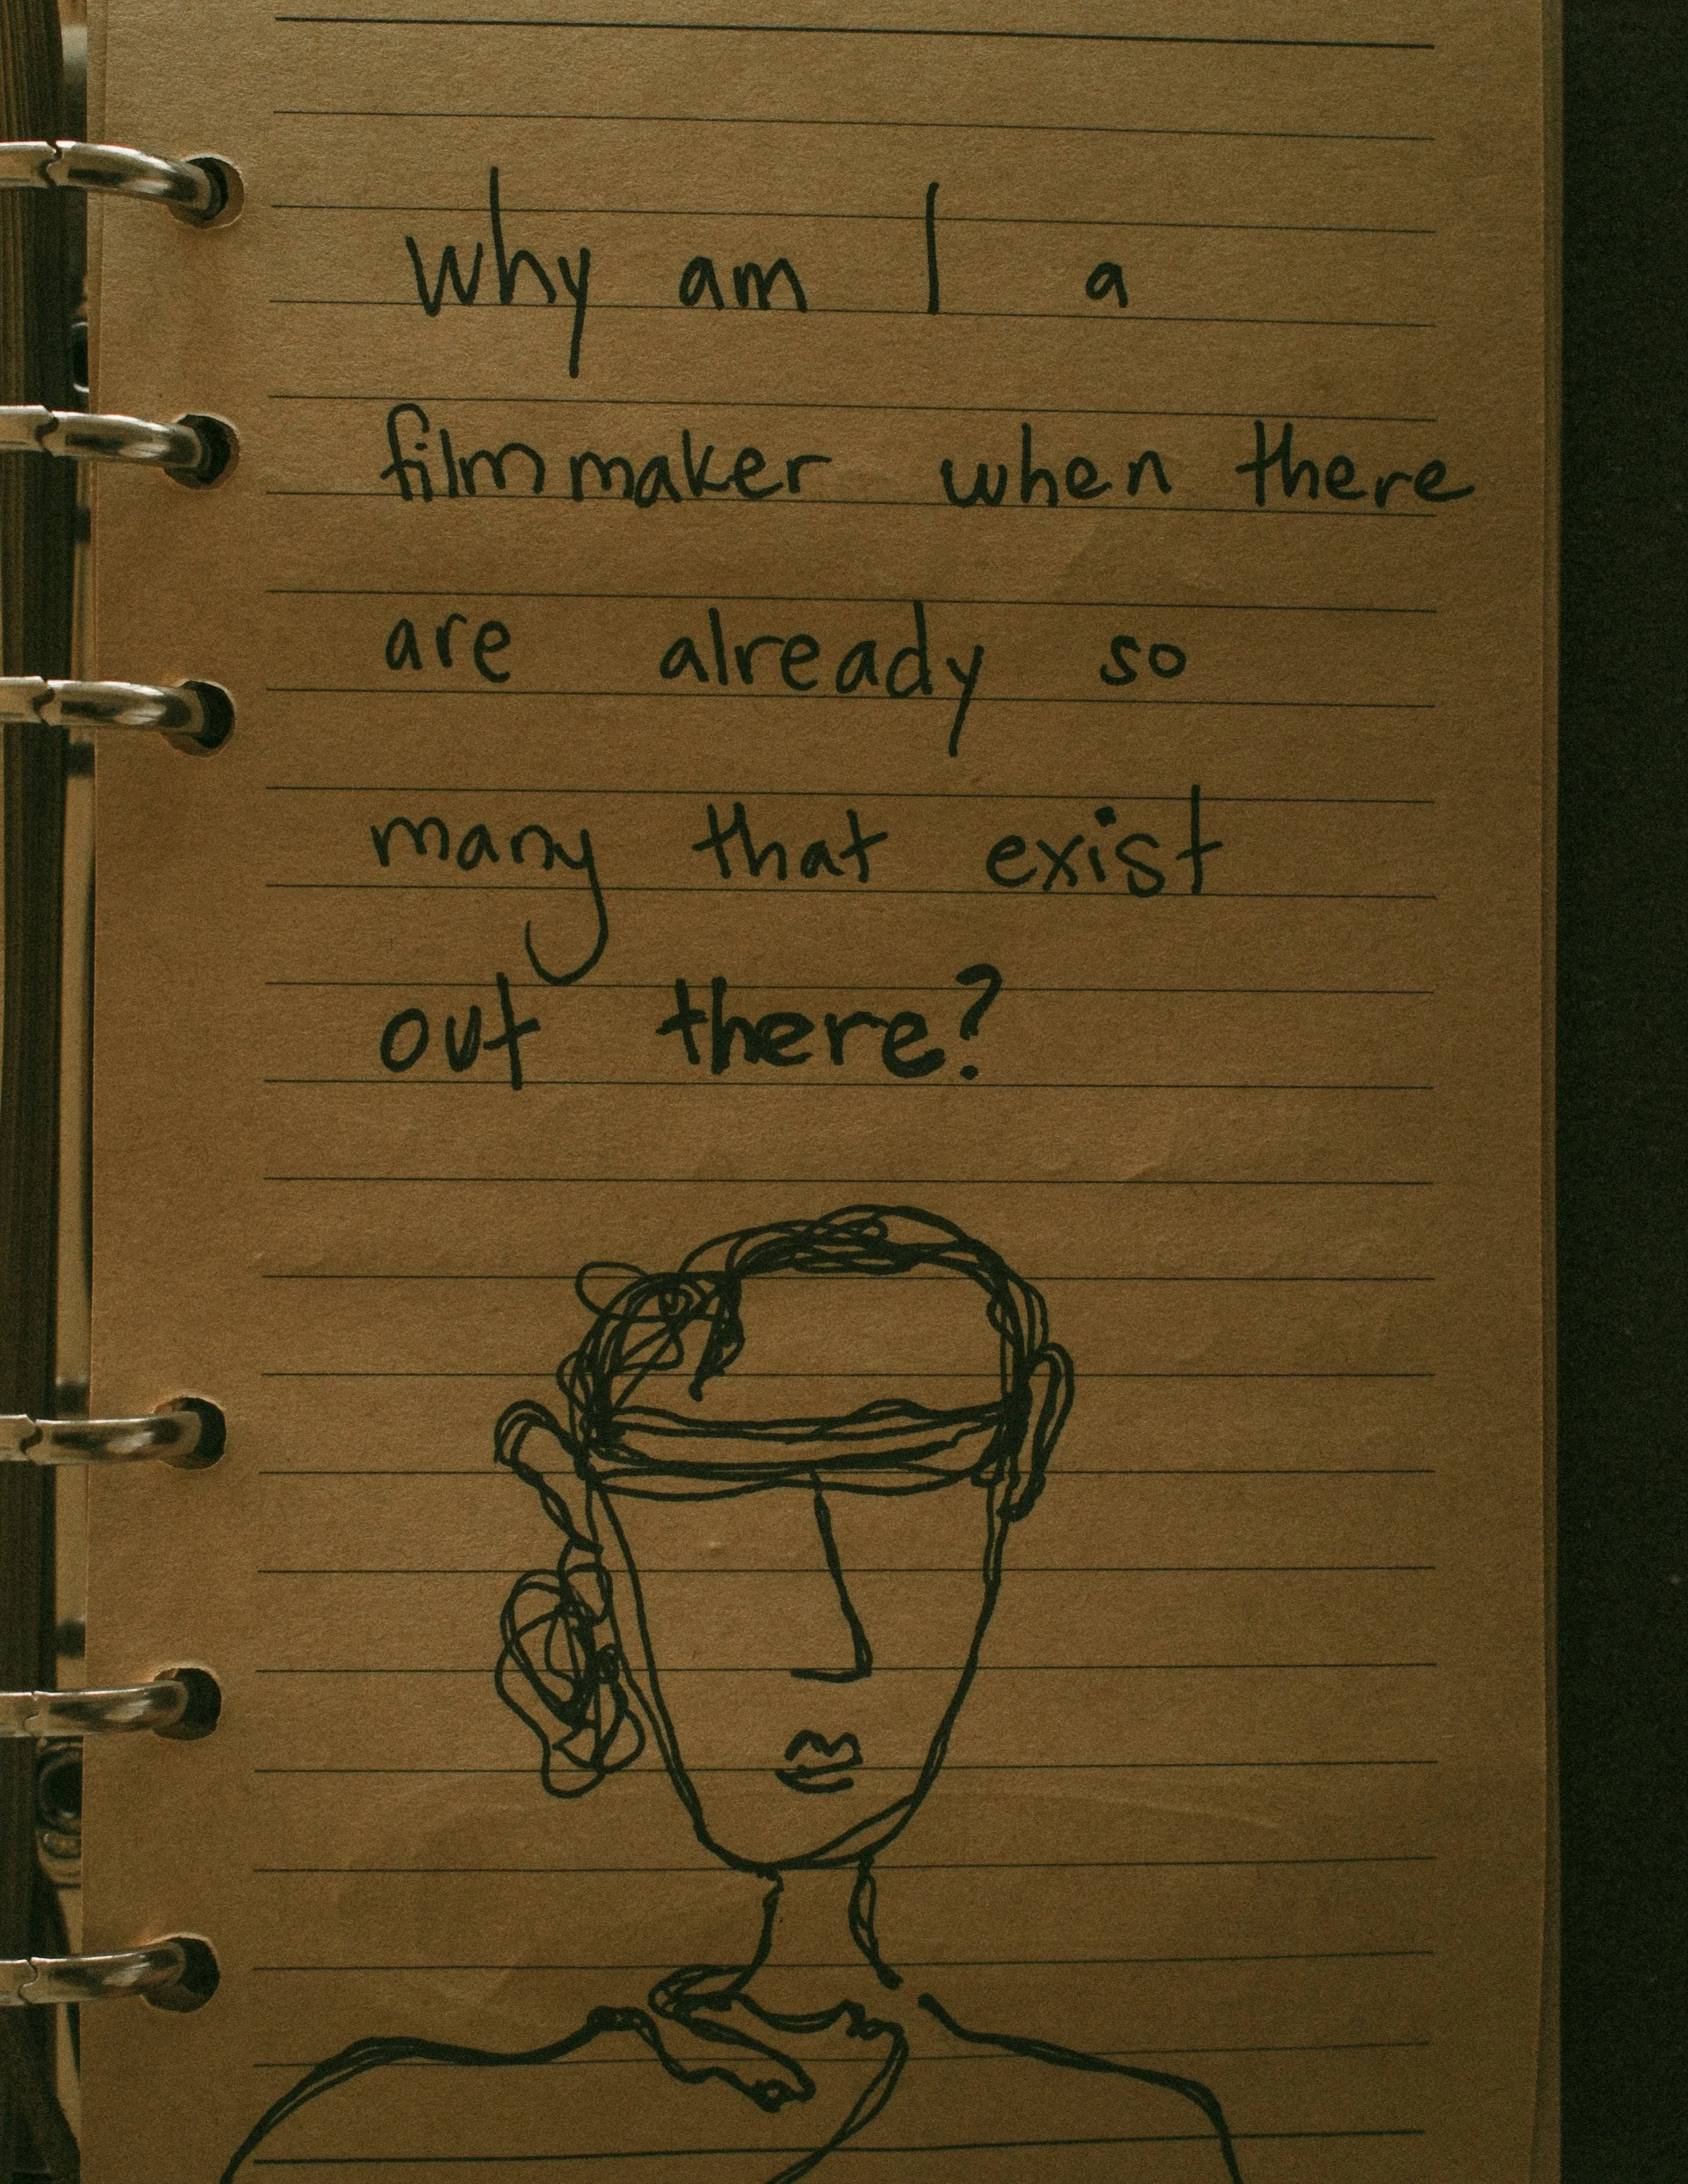 why am I a
filmmaker when there
are already so
many that exist
out there?